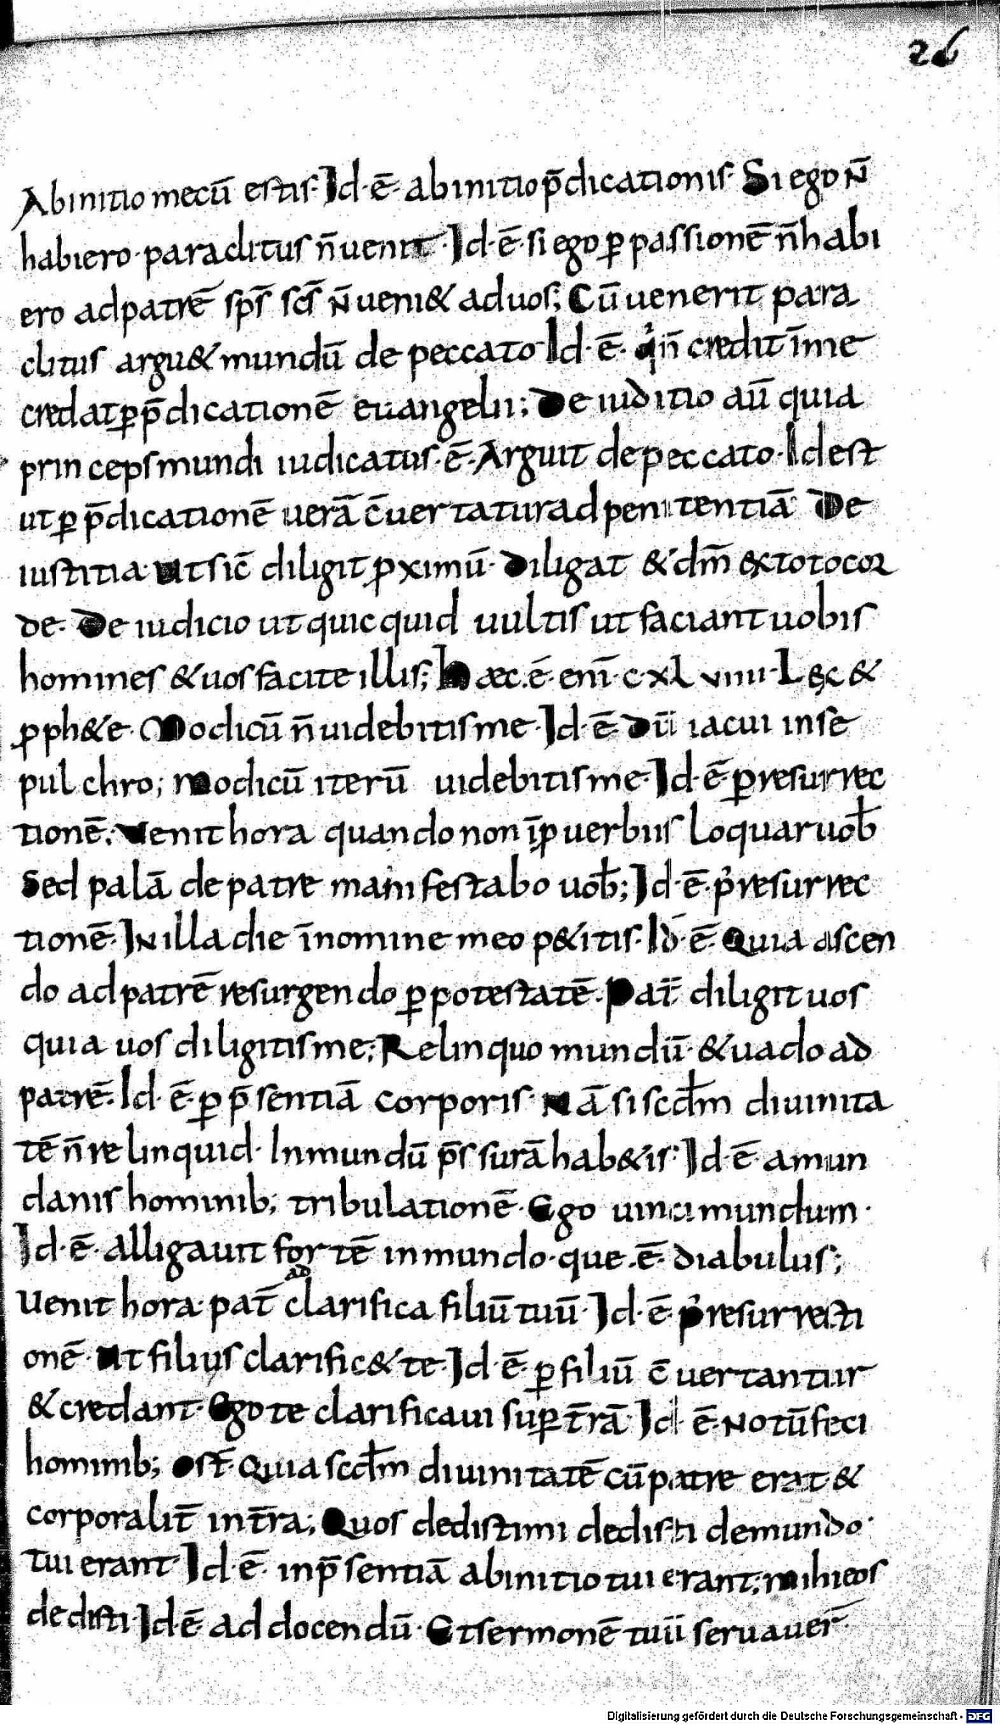 26
Abinitio mecū estis· Id·ē· abinitio p̄dicationis· Si ego n̄
habiero· paraclitus n̄ uenit· Id·ē· si ego ꝑ passionē n̄ habi
ero ad patrē sp̄s sc̄s n̄ ueni& ad uos; Cū uenerit para
clitus argu& mundū de peccato· Id·ē· qͥ n̄ credit īme
credat ꝑ p̄dicationē euangelii; De iuditio aū quia
princeps mundi iudicatus·ē· Arguit de peccato· Id est
ut ꝑ p̄dicationē uerā c̄uertatur ad penitentiā De
iustitia· ut sic̄ diligit ꝓximū· diligat & dm̄ ex toto cor
de· De iudicio ut quicquid uultis ut faciant uobis
homines & uos facite illis; Hæc·ē· enī· c·xl uiiii· Lęc &
ꝓph&e· Modicū n̄ uidebitis me· Id·ē· Dū iacui in se
pulchro; modicū iterū uidebitis me· Id·ē· ꝑ resurrec
tionē; Venit hora quando non ī ꝓuerbiis loquar uob̄
Sed palā de patre manifestabo uob̄; Id·ē· pͬ resurrec
tionē· In illa die īnomine meo p&itis· Id·ē· Quia ascen
do ad patrē resurgendo ꝑ potestatē· Pat̄ diligit uos
quia uos diligitis me; Relinquo mundū· & uado ad
patrē· Id·ē· ꝑ p̄sentiā corporis· Nā si scdm̄ diuinita
tē n̄ relinquid· In mundū p̄ssurā hab&is· Id·ē· a mun
danis hominib; tribulationē· Ego uinci mundum·
Id·ē· alligauit fortē in mundo· que·ē· diabulus;
ad
Uenit hora· pat̄ clarifica filiū tuū· Id·ē· pͬ resurresti
onē· ut filius clarific& te· Id·ē· ꝑ filiū c̄uertantur
& credant· Ego te clarificaui suꝑ t̄rā· Id·ē· notū feci
hominib; Ost̄· Quia scdm̄ diuinitatē cū patre erat &
corporalit̄ in t̄ra; Quos dedisti mi dedisti de mundo·
tui erant· Id·ē· in p̄sentiā abinitio tui erant; mihi eos
dedisti· Id·ē· ad docendū· Et sermonē tuū seruauer̄·
Digitalisierung gefördert durch die Deutsche Forschungsgemeinschaft - DFG